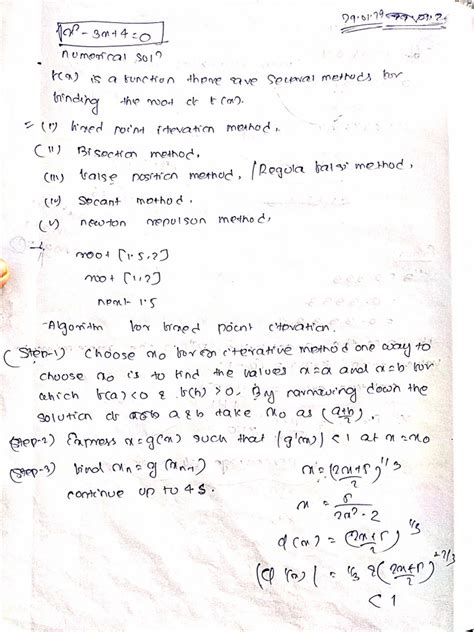 x² - 3x + 4 = 0
numerical sol?
f(x) is a function there are several methods for
finding the root of f(x).
= (i) fixed point iteration method.
(ii) Bisection method.
(iii) false position method. / Regula falsi method.
(iv) Secant method.
(v) newton repulson method.
root [1.5, 2]
root [1, 2]
next 1.5
Algorithm for fixed point iteration.
(Step-1) choose x₀ for an iterative method one way to
choose x₀ is to find the values x=a and x=b for
which f(a)<0 & f(b)>0. By narrowing down the
solution of a & b take x₀ as (a+b)/2.
(Step-2) Express x=g(x) such that |g'(x)| < 1 at x=x₀
(Step-3) find xₙ = g(xₙ₋₁)
continue up to 4S.
x = ((2x+5)/2)^1/3
x = 5/(2x²-2)
φ(x) = ((2x+5)/2)^1/3
|φ'(x)| = 1/3 ((2x+5)/2)^-2/3
< 1